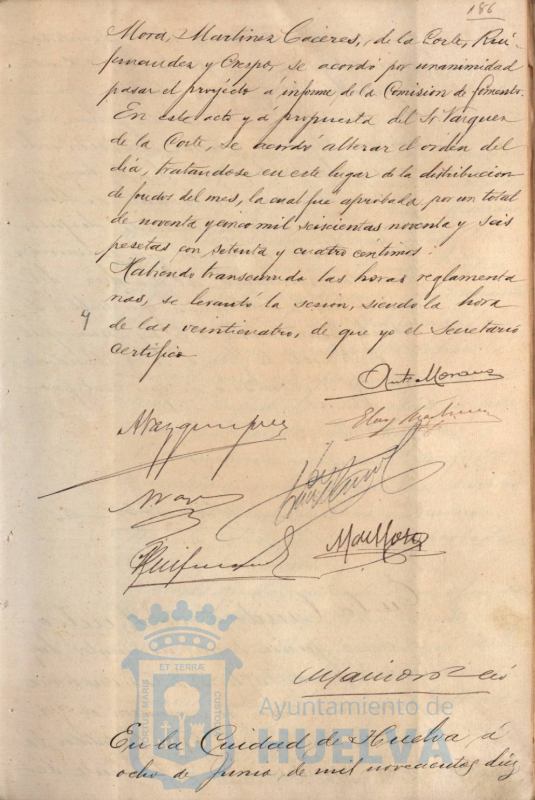 186
Mora, Martinez Caceres, de la Corte, Rui-
fernandez y Crespo, se acordó por unanimidad
pasar el proyecto á informe de la Comision de Fomento.
En este acto y á propuesta del Sr Vazquez
de la Corte, se acordó alterar el orden del
dia, tratandose en este lugar de la distribucion
de fondos del mes, la cual fué aprobada por un total
de noventa y cinco mil seiscientas noventa y seis
pesetas con setenta y cuatro céntimos.
Habiendo transcurrido las horas reglamenta
rias, se levantó la sesión, siendo la hora
de las veinticuatro, de que yo el Secretario
certifico
En la Ciudad de Huelva á
ocho de Junio de mil novecientos diez
ET TERRÆ
PORTUS MARIS
CUSTODIA
Ayuntamiento de
HUELVA